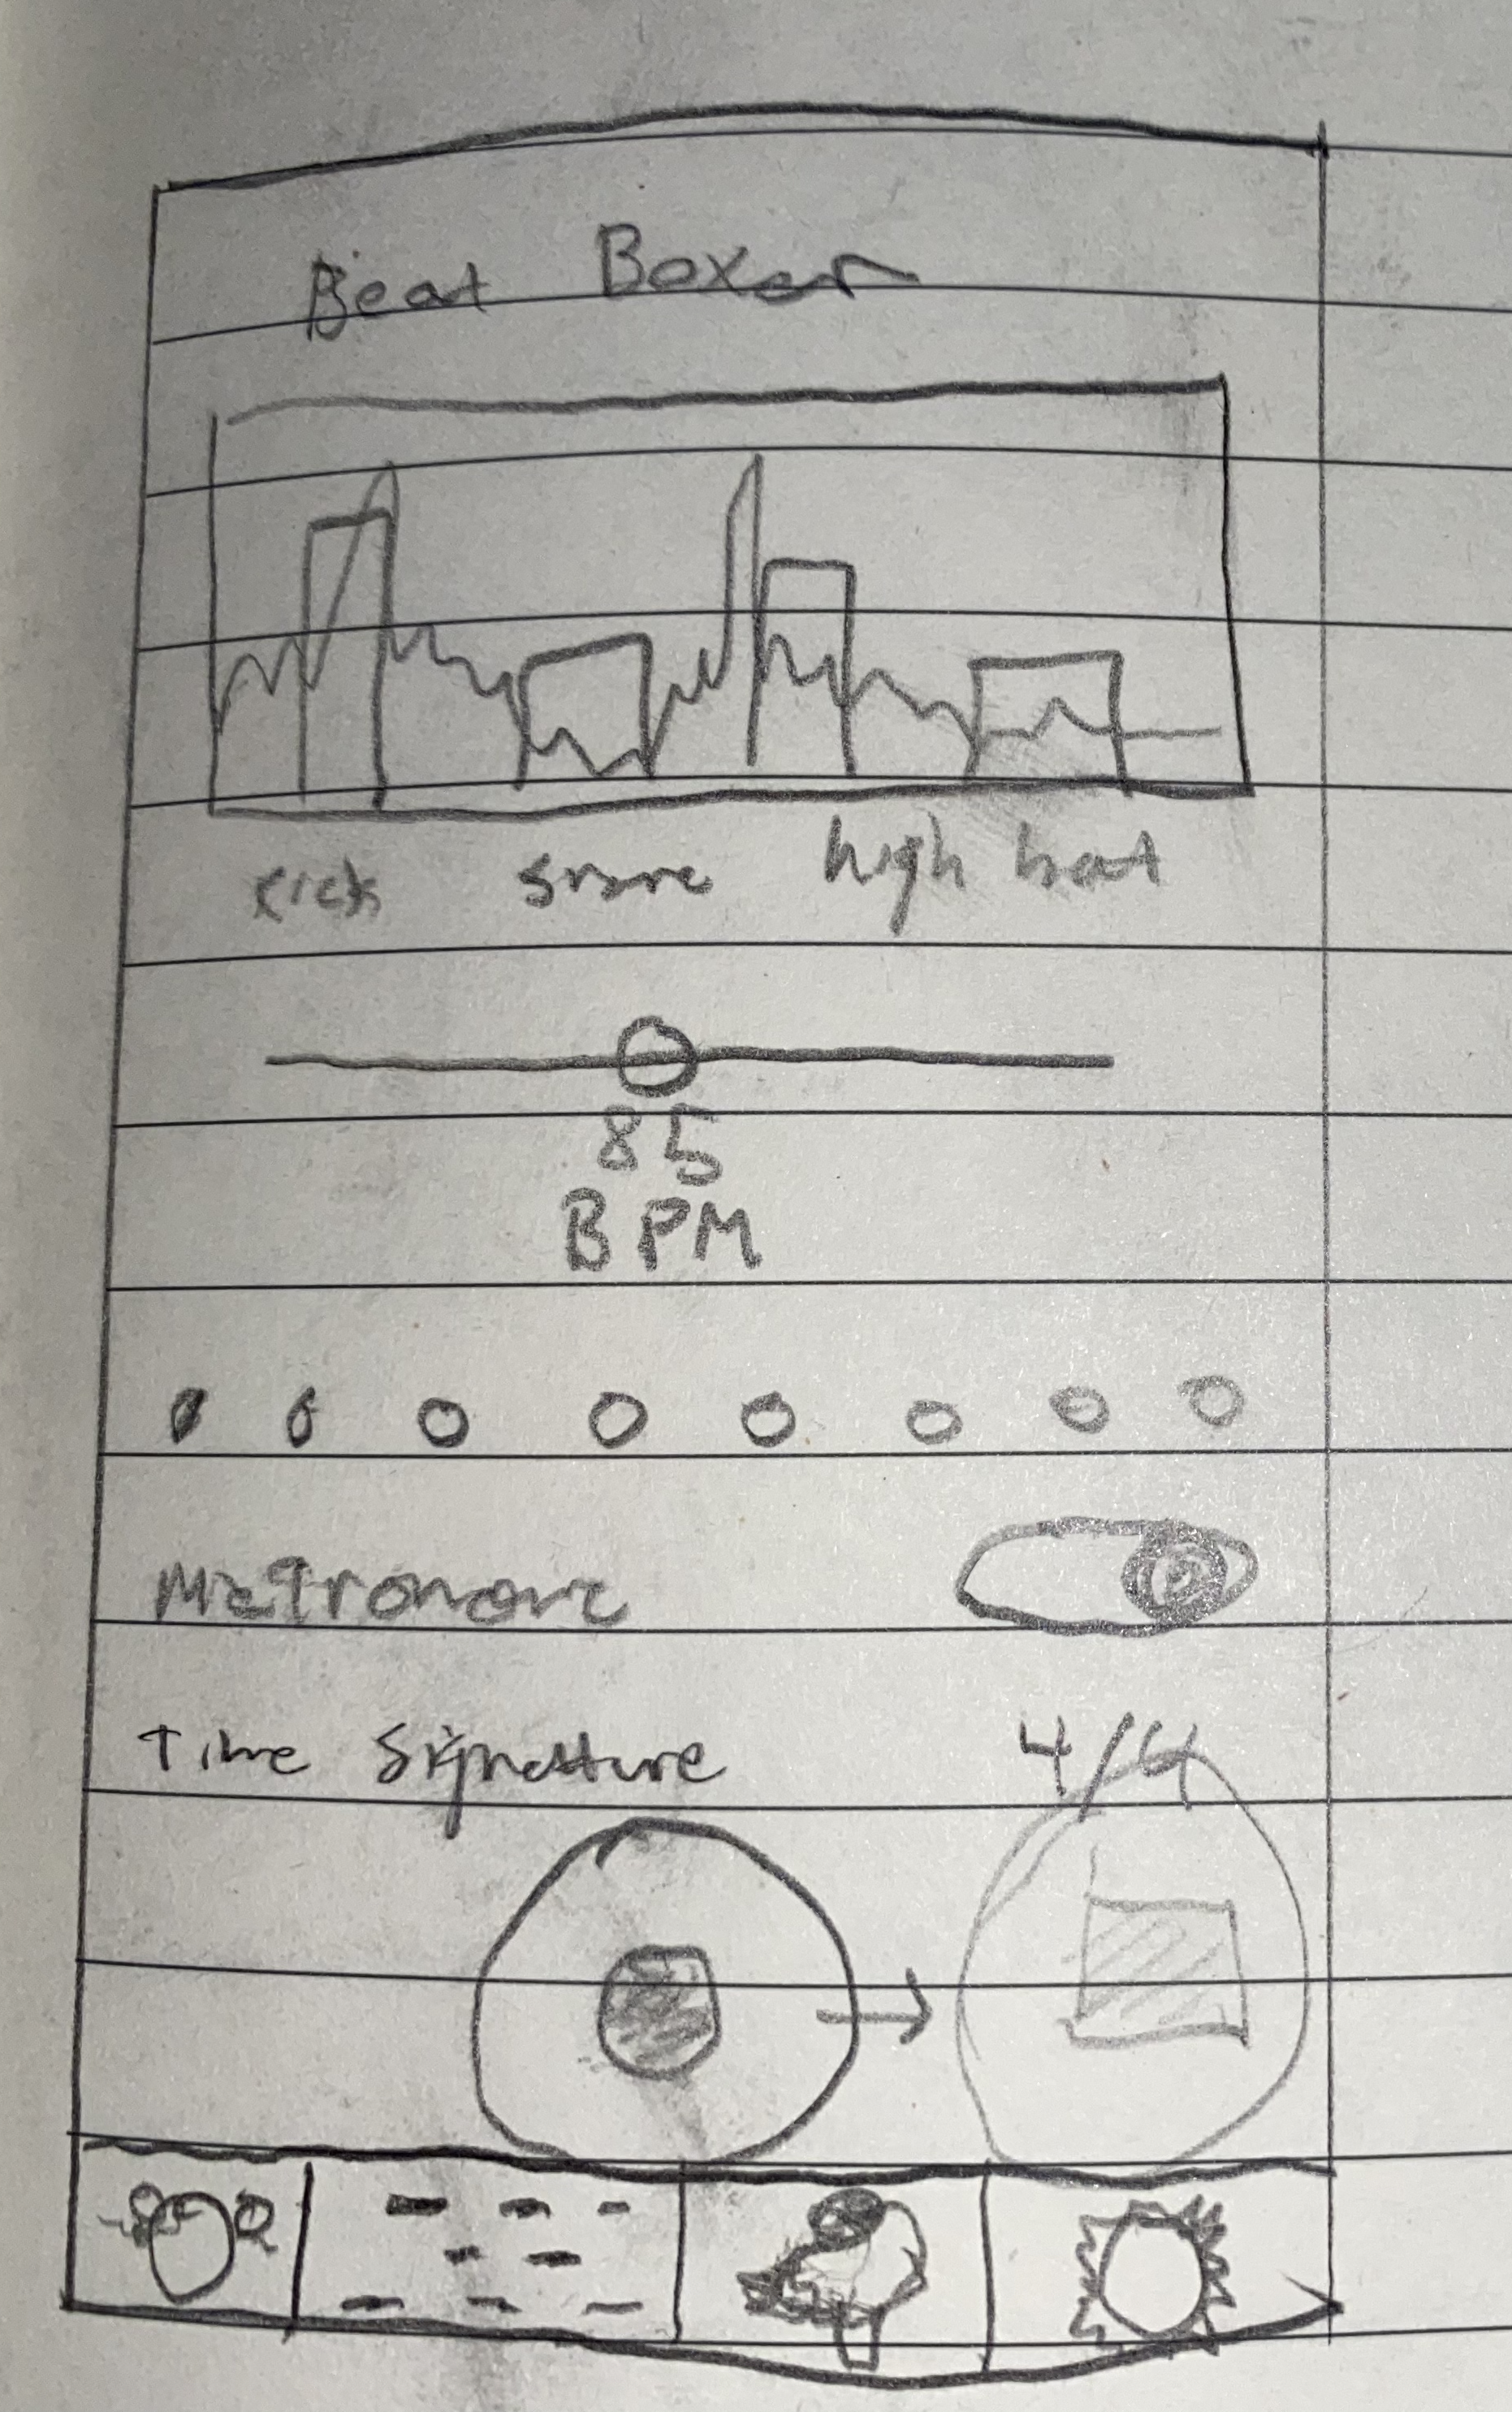 Beat Boxer
kick snare high hat
85
BPM
Metronome
Time Signature 4/4